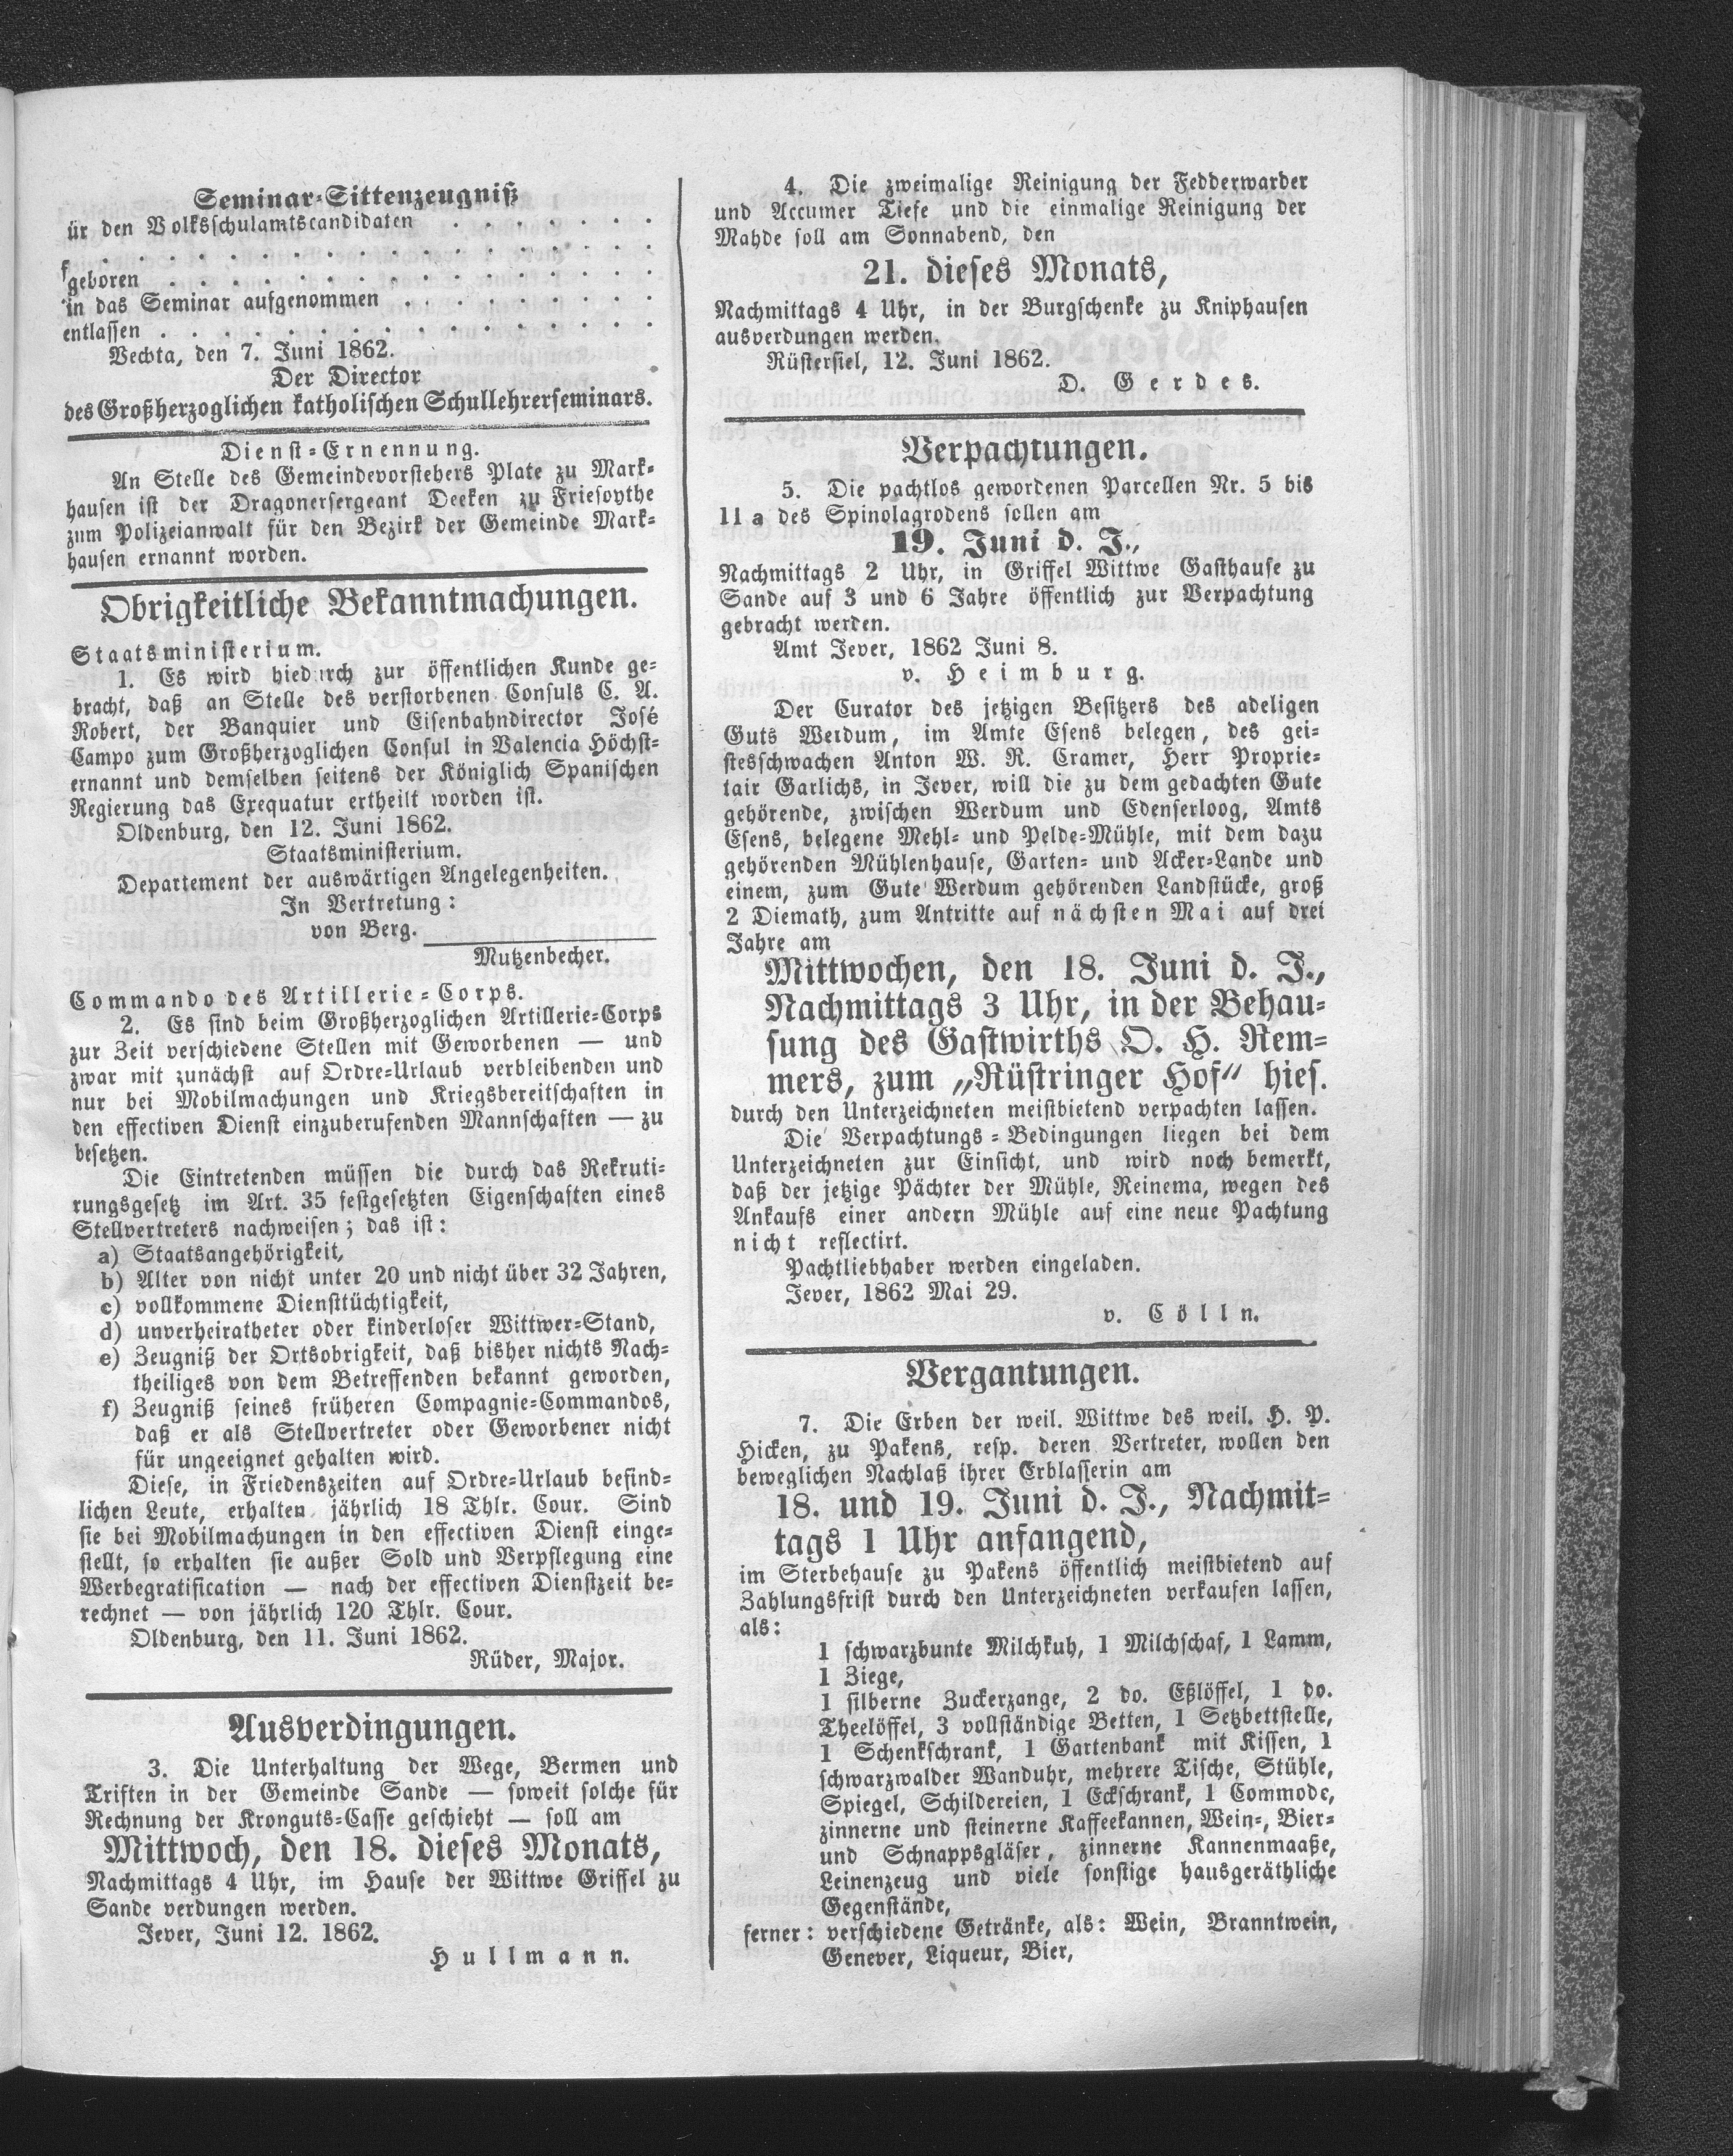 Seminar-Sittenzeugniß
ür den Volksschulamtscandidaten . . . . . . .
f . . . . . . . . . . . . . . . . . .
geboren . . . . . . . . . . . . . . . .
in das Seminar aufgenommen . . . . . . . .
entlassen . . . . . . . . . . . . . . . .
Vechta, den 7. Juni 1862.
Der Director
des Großherzoglichen katholischen Schullehrerseminars.
Dienst-Ernennung.
An Stelle des Gemeindevorstehers Plate zu Mark-
hausen ist der Dragonersergeant Deeken zu Friesoythe
zum Polizeianwalt für den Bezirk der Gemeinde Mark-
hausen ernannt worden.
Obrigkeitliche Bekanntmachungen.
Staatsministerium.
1. Es wird hiedurch zur öffentlichen Kunde ge-
bracht, daß an Stelle des verstorbenen Consuls C. A.
Robert, der Banquier und Eisenbahndirector José
Campo zum Großherzoglichen Consul in Valencia Höchst-
ernannt und demselben seitens der Königlich Spanischen
Regierung das Exequatur ertheilt worden ist.
Oldenburg, den 12. Juni 1862.
Staatsministerium.
Departement der auswärtigen Angelegenheiten.
In Vertretung:
von Berg.
Mutzenbecher.
Commando des Artillerie-Corps.
2. Es sind beim Großherzoglichen Artillerie-Corps
zur Zeit verschiedene Stellen mit Geworbenen — und
zwar mit zunächst auf Ordre-Urlaub verbleibenden und
nur bei Mobilmachungen und Kriegsbereitschaften in
den effectiven Dienst einzuberufenden Mannschaften — zu
besetzen.
Die Eintretenden müssen die durch das Rekruti-
rungsgesetz im Art. 35 festgesetzten Eigenschaften eines
Stellvertreters nachweisen; das ist:
a) Staatsangehörigkeit,
b) Alter von nicht unter 20 und nicht über 32 Jahren,
c) vollkommene Diensttüchtigkeit,
d) unverheiratheter oder kinderloser Wittwer-Stand,
e) Zeugniß der Ortsobrigkeit, daß bisher nichts Nach-
theiliges von dem Betreffenden bekannt geworden,
f) Zeugniß seines früheren Compagnie-Commandos,
daß er als Stellvertreter oder Geworbener nicht
für ungeeignet gehalten wird.
Diese, in Friedenszeiten auf Ordre-Urlaub befind-
lichen Leute, erhalten jährlich 18 Thlr. Cour. Sind
sie bei Mobilmachungen in den effectiven Dienst einge-
stellt, so erhalten sie außer Sold und Verpflegung eine
Werbegratification — nach der effectiven Dienstzeit be-
rechnet — von jährlich 120 Thlr. Cour.
Oldenburg, den 11. Juni 1862.
Rüder, Major.
Ausverdingungen.
3. Die Unterhaltung der Wege, Bermen und
Triften in der Gemeinde Sande — soweit solche für
Rechnung der Kronguts-Casse geschieht — soll am
Mittwoch, den 18. dieses Monats,
Nachmittags 4 Uhr, im Hause der Wittwe Griffel zu
Sande verdungen werden.
Jever, Juni 12. 1862.
Hullmann.
4. Die zweimalige Reinigung der Fedderwarder
und Accumer Tiefe und die einmalige Reinigung der
Mahde soll am Sonnabend, den
21. dieses Monats,
Nachmittags 4 Uhr, in der Burgschenke zu Kniphausen
ausverdungen werden.
Rüstersiel, 12. Juni 1862.
D. Gerdes.
Verpachtungen.
5. Die pachtlos gewordenen Parcellen Nr. 5 bis
11 a des Spinolagrodens sollen am
19. Juni d. J.,
Nachmittags 2 Uhr, in Griffel Wittwe Gasthause zu
Sande auf 3 und 6 Jahre öffentlich zur Verpachtung
gebracht werden.
Amt Jever, 1862 Juni 8.
v. Heimburg.
Der Curator des jetzigen Besitzers des adeligen
Guts Werdum, im Amte Esens belegen, des gei-
stesschwachen Anton W. R. Cramer, Herr Proprie-
tair Garlichs, in Jever, will die zu dem gedachten Gute
gehörende, zwischen Werdum und Edenserloog, Amts
Esens, belegene Mehl- und Pelde-Mühle, mit dem dazu
gehörenden Mühlenhause, Garten- und Acker-Lande und
einem, zum Gute Werdum gehörenden Landstücke, groß
2 Diemath, zum Antritte auf nächsten Mai auf drei
Jahre am
Mittwochen, den 18. Juni d. J.,
Nachmittags 3 Uhr, in der Behau-
sung des Gastwirths O. H. Rem-
mers, zum „Rüstringer Hof“ hies.
durch den Unterzeichneten meistbietend verpachten lassen.
Die Verpachtungs-Bedingungen liegen bei dem
Unterzeichneten zur Einsicht, und wird noch bemerkt,
daß der jetzige Pächter der Mühle, Reinema, wegen des
Ankaufs einer andern Mühle auf eine neue Pachtung
nicht reflectirt.
Pachtliebhaber werden eingeladen.
Jever, 1862 Mai 29.
v. Cölln.
Vergantungen.
7. Die Erben der weil. Wittwe des weil. H. P.
Hicken, zu Pakens, resp. deren Vertreter, wollen den
beweglichen Nachlaß ihrer Erblasserin am
18. und 19. Juni d. J., Nachmit-
tags 1 Uhr anfangend,
im Sterbehause zu Pakens öffentlich meistbietend auf
Zahlungsfrist durch den Unterzeichneten verkaufen lassen,
als:
1 schwarzbunte Milchkuh, 1 Milchschaf, 1 Lamm,
1 Ziege,
1 silberne Zuckerzange, 2 do. Eßlöffel, 1 do.
Theelöffel, 3 vollständige Betten, 1 Setzbettstelle,
1 Schenkschrank, 1 Gartenbank mit Kissen, 1
schwarzwalder Wanduhr, mehrere Tische, Stühle,
Spiegel, Schildereien, 1 Eckschrank, 1 Commode,
zinnerne und steinerne Kaffeekannen, Wein-, Bier-
und Schnappsgläser, zinnerne Kannenmaaße,
Leinenzeug und viele sonstige hausgeräthliche
Gegenstände,
ferner: verschiedene Getränke, als: Wein, Branntwein,
Genever, Liqueur, Bier,